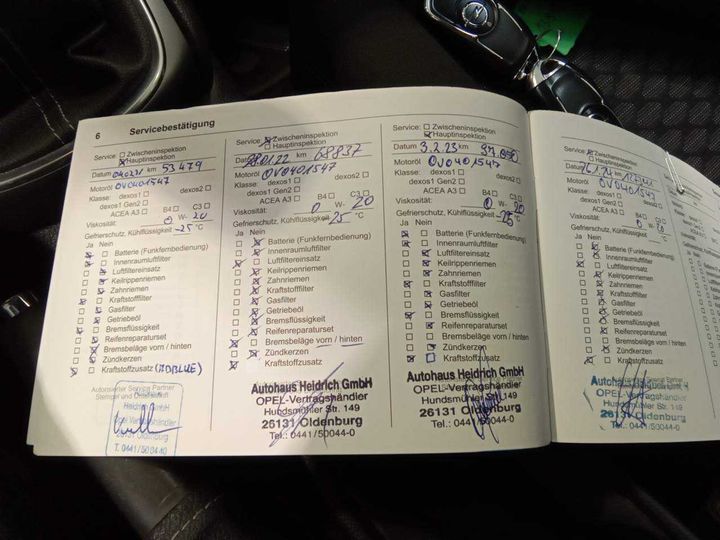 6 Servicebestätigung
Service: Zwischeninspektion
Hauptinspektion
Datum 04.02.21 km 53 479
Motoröl OV0401547
Klasse: dexos1 dexos2
dexos1 Gen2
ACEA A3 B4 C3
Viskosität: 0 W- 20
Gefrierschutz, Kühlflüssigkeit -25 °C
Ja Nein
Batterie (Funkfernbedienung)
Innenraumluftfilter
Luftfiltereinsatz
Keilrippenriemen
Zahnriemen
Kraftstofffilter
Gasfilter
Getriebeöl
Bremsflüssigkeit
Reifenreparaturset
Bremsbeläge vorn / hinten
Zündkerzen
Kraftstoffzusatz (ADBLUE)
Autorisierter Service Partner
Stempel und
Heidrich GmbH
Opel Vertragshändler
26131 Oldenburg
T. 0441/500440
Service: Zwischeninspektion
Hauptinspektion
km 68837
Motoröl OV0401547
Klasse: dexos1 dexos2
dexos1 Gen2
ACEA A3 B4 C3
Viskosität: 0 W- 20
Gefrierschutz, Kühlflüssigkeit -25 °C
Ja Nein
Batterie (Funkfernbedienung)
Innenraumluftfilter
Luftfiltereinsatz
Keilrippenriemen
Zahnriemen
Kraftstofffilter
Gasfilter
Getriebeöl
Bremsflüssigkeit
Reifenreparaturset
Bremsbeläge vorn / hinten
Zündkerzen
Kraftstoffzusatz
Autohaus Heidrich GmbH
OPEL-Vertragshändler
Hundsmühler Str. 149
26131 Oldenburg
Tel.: 0441/50044-0
Service: Zwischeninspektion
Hauptinspektion
Datum 3.2.23 km
Motoröl OV0401547
Klasse: dexos1 dexos2
dexos1 Gen2
ACEA A3 B4 C3
Viskosität: 0 W- 20
Gefrierschutz, Kühlflüssigkeit -25 °C
Ja Nein
Batterie (Funkfernbedienung)
Innenraumluftfilter
Luftfiltereinsatz
Keilrippenriemen
Zahnriemen
Kraftstofffilter
Gasfilter
Getriebeöl
Bremsflüssigkeit
Reifenreparaturset
Bremsbeläge vorn / hinten
Zündkerzen
Kraftstoffzusatz
Autohaus Heidrich GmbH
OPEL-Vertragshändler
Hundsmühler Str. 149
26131 Oldenburg
Tel.: 0441/50044-0
Service: Zwischeninspektion
Hauptinspektion
Datum km
Motoröl OV0401547
Klasse: dexos1
dexos1 Gen2
ACEA A3 B4
Viskosität: 0 W- 20
Gefrierschutz, Kühlflüssigkeit
Ja Nein
Batterie (Funkfernbedienung)
Innenraumluftfilter
Luftfiltereinsatz
Keilrippenriemen
Zahnriemen
Kraftstofffilter
Gasfilter
Getriebeöl
Bremsflüssigkeit
Reifenreparaturset
Bremsbeläge vorn / hinten
Zündkerzen
Kraftstoffzusatz
OPEL-Vertragshändler
Hundsmühler Str. 149
26131 Oldenburg
Tel.: 0441/50044-0